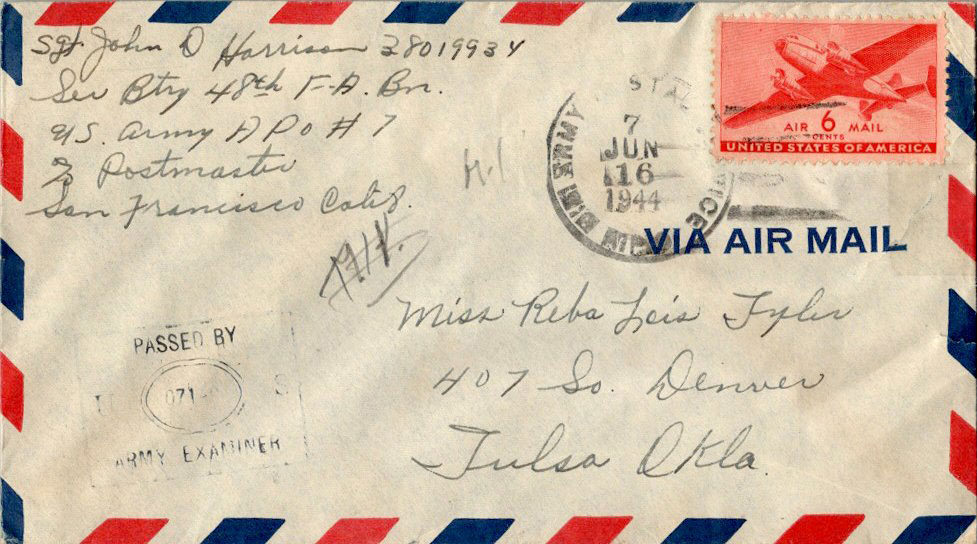 Sgt. John D Harrison 38019934
Ser Btry 48th F.A. Bn.
U.S. Army APO # 7
% Postmaster
San Francisco Calif.
7
JUN
16
1944
ARMY
AIR 6 MAIL
CENTS
UNITED STATES OF AMERICA
VIA AIR MAIL
Miss Reba Lois Tyler
407 So. Denver
Tulsa Okla.
PASSED BY
U S
071
ARMY EXAMINER